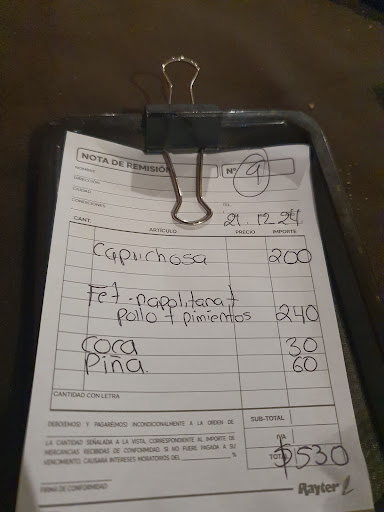 NOTA DE REMISIÓN Nº 9
NOMBRE
DIRECCIÓN
CIUDAD
CONDICIONES TEL.
21.12.24
CANT. ARTICULO PRECIO IMPORTE
Caprichosa 200
Fet-napolitana +
pollo + pimientos 240
Coca 30
Piña. 60
CANTIDAD CON LETRA
DEBO(EMOS) Y PAGARE(MOS) INCONDICIONALMENTE A LA ORDEN DE
SUB-TOTAL
LA CANTIDAD SEÑALADA A LA VISTA, CORRESPONDIENTE AL IMPORTE DE
IVA
MERCANCIAS RECIBIDAS DE CONFORMIDAD. SI NO FUERE PAGADA A SU
VENCIMIENTO, CAUSARÁ INTERESES MORATORIOS DEL %
TOTAL $530
FIRMA DE CONFORMIDAD
Rayter